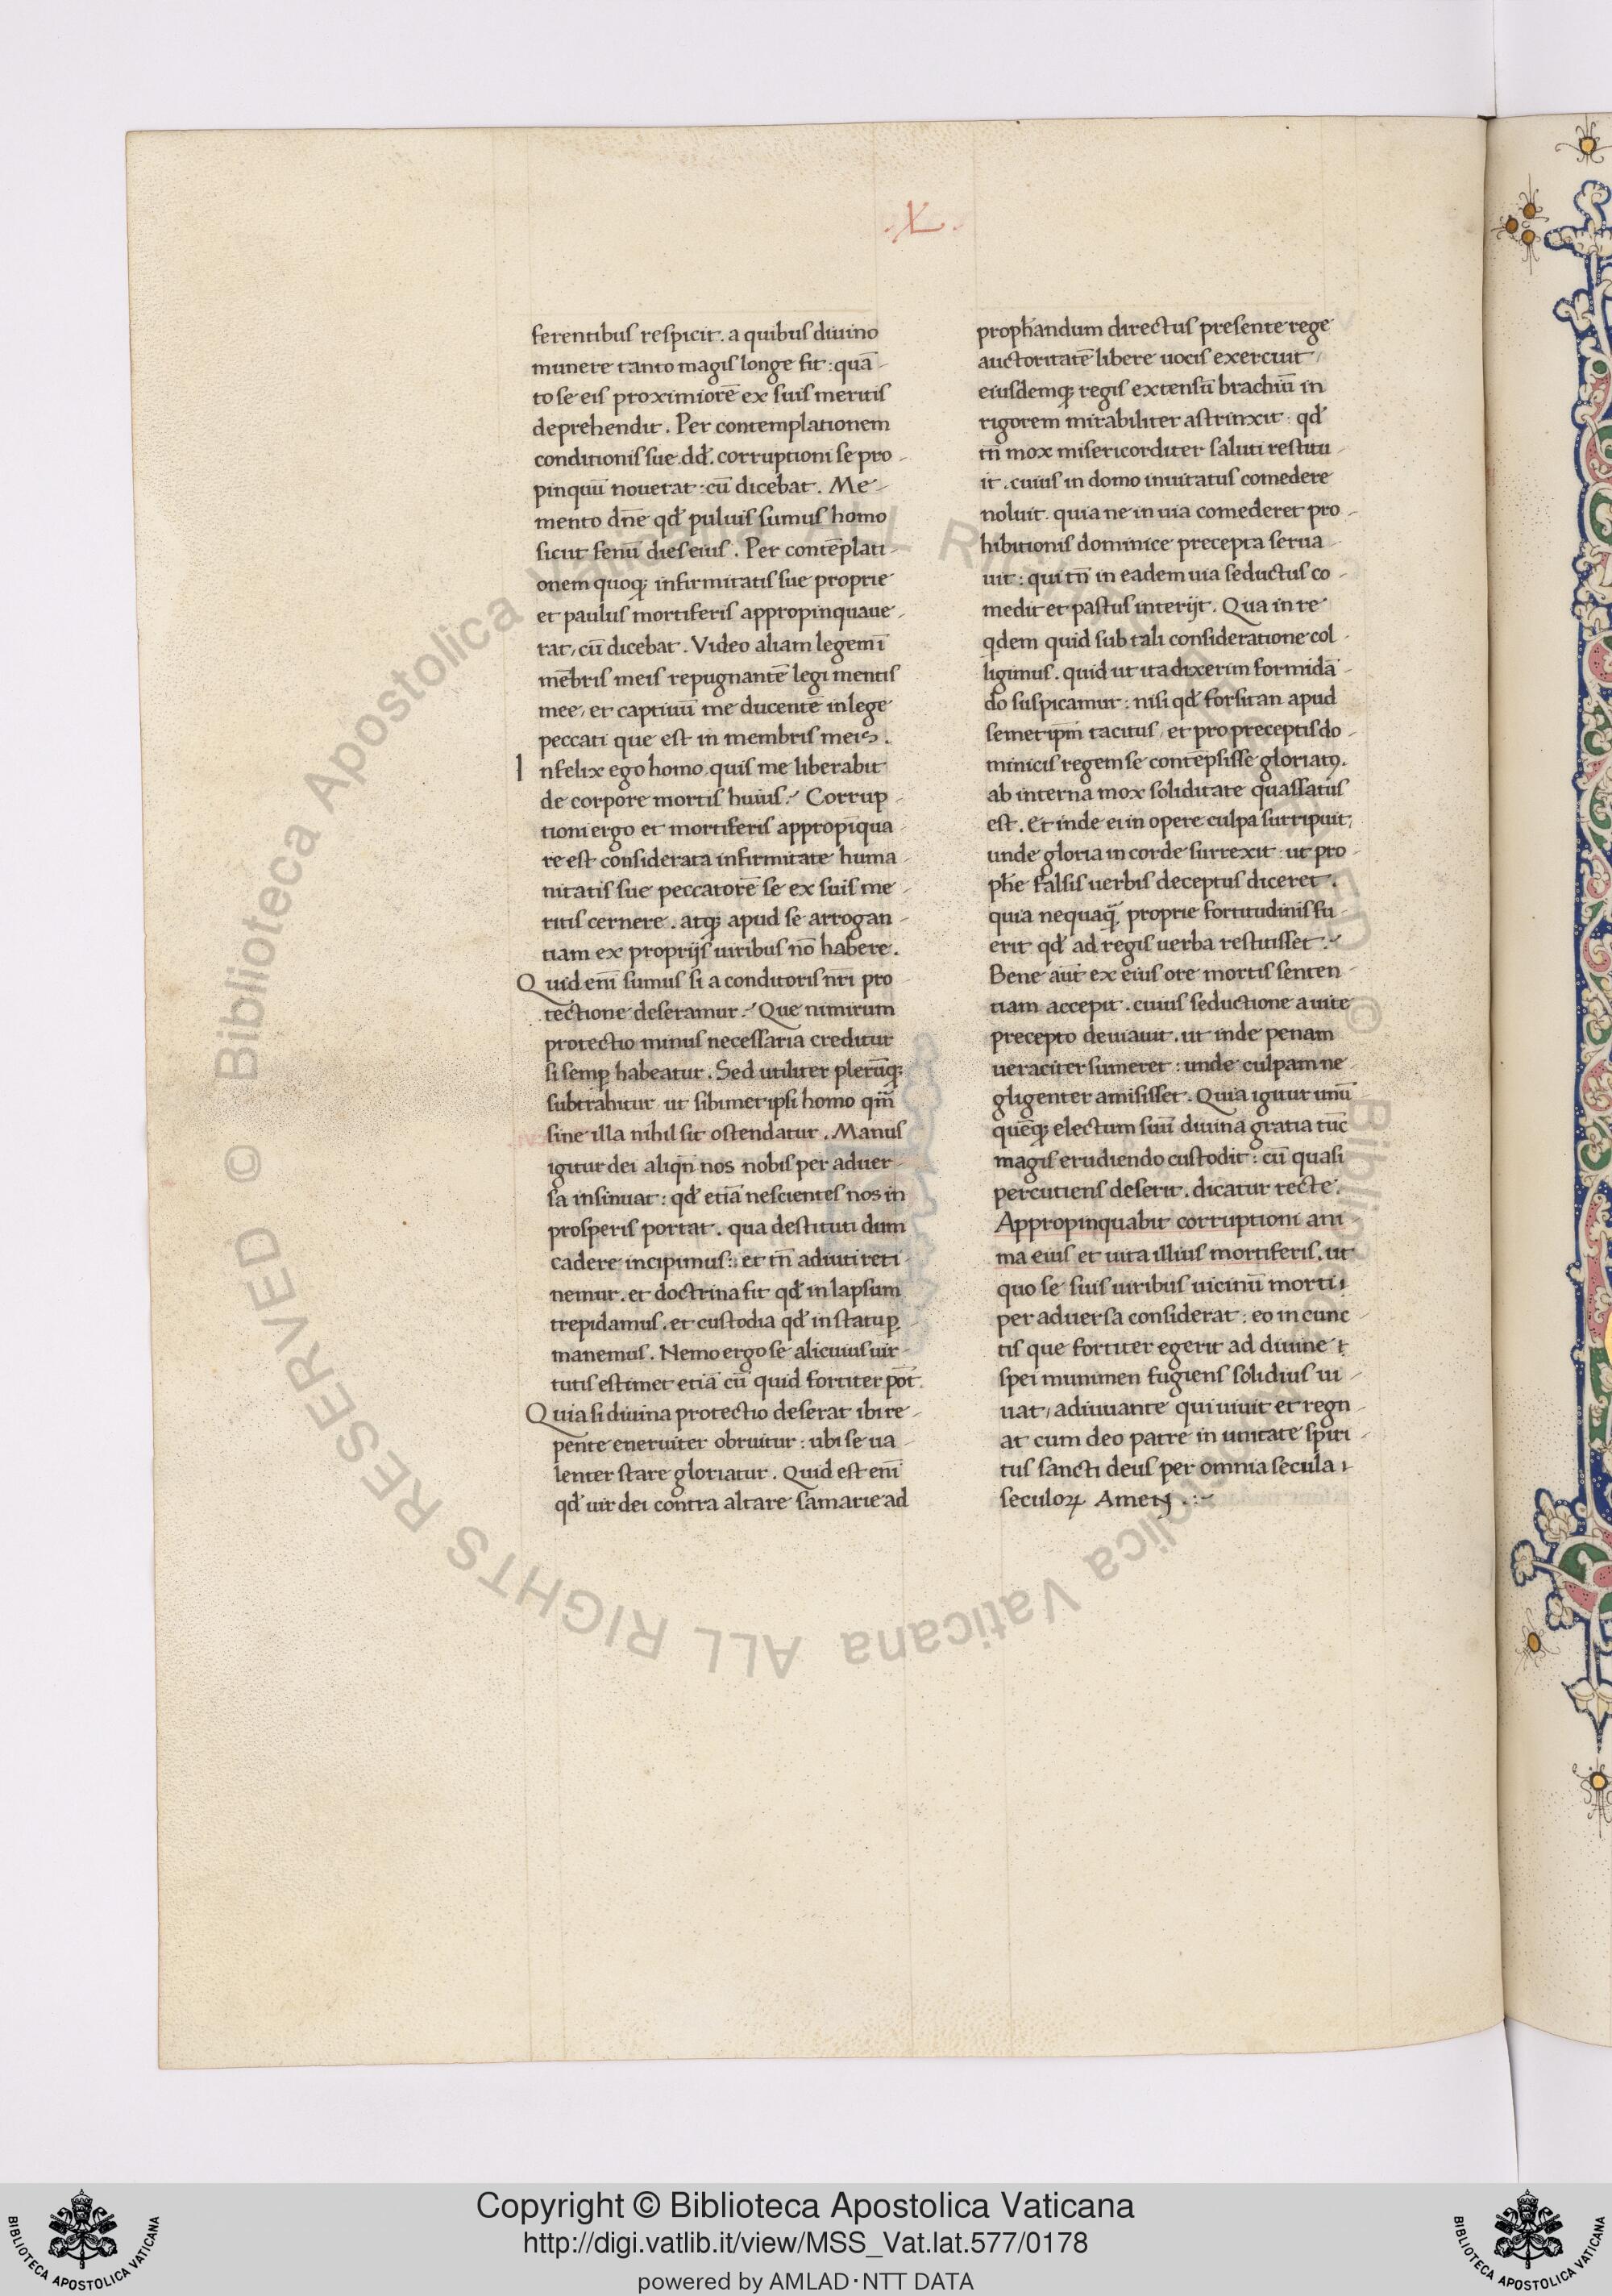 .X.
ferentibus respicit. a quibus diuino
munere tanto magis longe fit: quā-
to se eis proximiorē ex suis meritis
deprehendit. Per contemplationem
conditionis sue .dd̄. corruptioni se pro-
pinquū nouerat: cū dicebat. Me-
mento dn̄e qd̄ puluis sumus homo
sicut fenū dies eius. Per contēplati-
onem quoq; infirmitatis sue proprie
et paulus mortiferis appropinquaue-
rat, cū dicebat. Video aliam legem ī
mēbris meis repugnantē legi mentis
mee, et captiuū me ducentē in lege
peccati que est in membris meis.
Infelix ego homo quis me liberabit
de corpore mortis huius. Corrup-
tioni ergo et mortiferis appropīqua-
re est considerata infirmitate huma-
nitatis sue peccatorē se ex suis me-
ritis cernere. atq; apud se arrogan-
tiam ex proprijs uiribus nō habere.
Quid enī sumus si a conditoris nr̄i pro-
tectione deseramur. Que nimirum
protectio minus necessaria creditur
si semꝑ habeatur. Sed utiliter plerūq;
subtrahitur ut sibimet ipsi homo qm̄
sine illa nihil sit ostendatur. Manus
igitur dei aliqn̄ nos nobis per aduer-
sa insinuat: qd̄ etiā nescientes nos in
prosperis portat. qua destituti dum
cadere incipimus: et tn̄ adiuti reti-
nemur. et doctrina fit qd̄ in lapsum
trepidamus. et custodia qd̄ in statu ꝑ-
manemus. Nemo ergo se alicuius uir-
tutis estimet etiā cū quid fortiter pōt.
Quia si diuina protectio deserat ibi re-
pente eneruiter obruitur: ubi se ua-
lenter stare gloriatur. Quid est enī
qd̄ uir dei contra altare samarie ad
proph̄andum directus presente rege
auctoritatē libere uocis exercuit,
eiusdemq; regis extensū brachiū in
rigorem mirabiliter astrinxit: qd̄
tn̄ mox misericorditer saluti restitu-
it. cuius in domo inuitatus comedere
noluit. quia ne in uia comederet pro-
hibitionis dominice precepta serua-
uit: qui tn̄ in eadem uia seductus co-
medit et pastus interijt. Qua in re
qdem quid sub tali consideratione col-
ligimus. quid ut ita dixerim formidā-
do suspicamur: nisi qd̄ forsitan apud
semet ip̄m tacitus, et pro preceptis do-
minicis regem se contēpsisse gloriatꝰ.
ab interna mox soliditate quassatus
est. Et inde ei in opere culpa surripuit,
unde gloria in corde surrexit: ut pro-
ph̄e falsis uerbis deceptus diceret.
quia nequaq̄ proprie fortitudinis fu-
erit qd̄ ad regis uerba restitisset.
Bene aut̄ ex eius ore mortis senten-
tiam accepit. cuius seductione a uite
precepto deuiauit. ut inde penam
ueraciter sumeret: unde culpam ne-
gligenter amisisset. Quia igitur unū-
quēq; electum suū diuina gratia tūc
magis erudiendo custodit: cū quasi
percutiens deserit. dicatur recte.
Appropinquabit corruptioni ani-
ma eius et uita illius mortiferis. ut
quo se suis uiribus uicinū morti
per aduersa considerat: eo in cunc-
tis que fortiter egerit ad diuine
spei munimen fugiens solidius ui-
uat, adiuuante qui uiuit et regn-
at cum deo patre in unitate spiri-
tus sancti deus per omnia secula
seculoꝝ Amen.
Copyright © Biblioteca Apostolica Vaticana
http://digi.vatlib.it/view/MSS_Vat.lat.577/0178
powered by AMLAD·NTT DATA
BIBLIOTECA APOSTOLICA VATICANA
BIBLIOTECA APOSTOLICA VATICANA
© Biblioteca Apostolica Vaticana ALL RIGHTS RESERVED
© Biblioteca Apostolica Vaticana ALL RIGHTS RESERVED